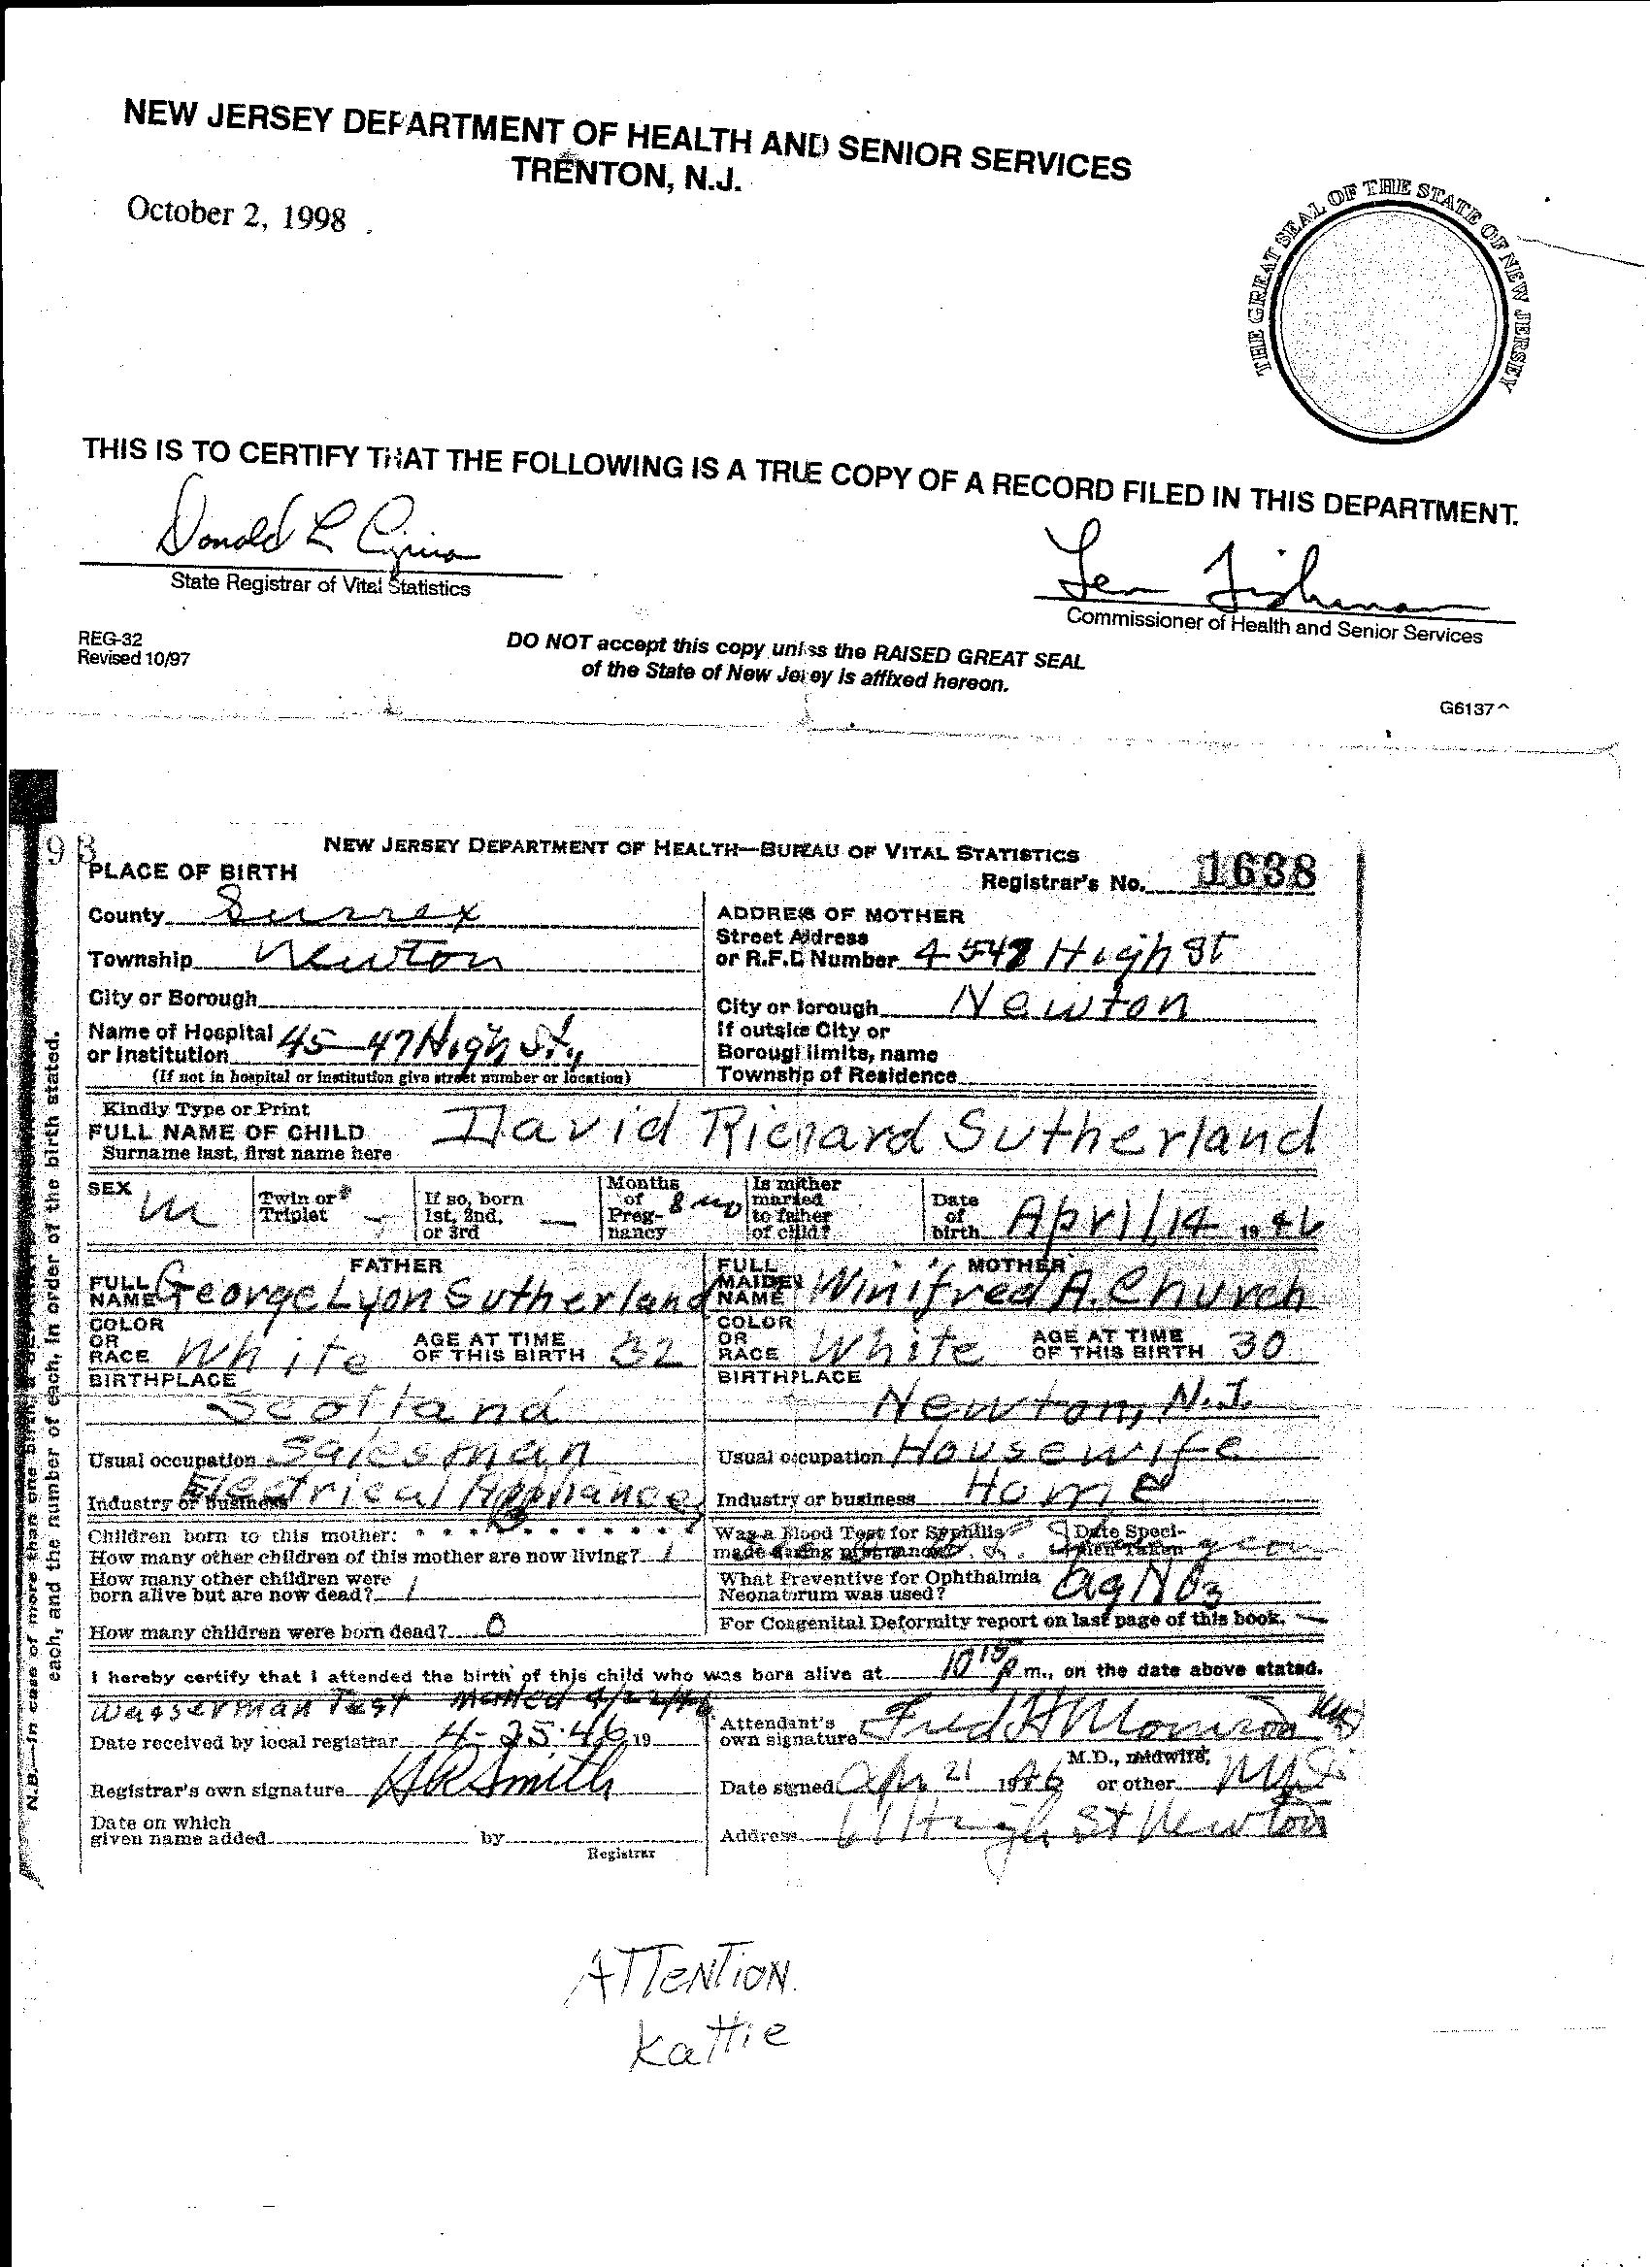 NEW JERSEY DEPARTMENT OF HEALTH AND SENIOR SERVICES
TRENTON, N.J.
October 2, 1998
THE GREAT SEAL OF THE STATE OF NEW JERSEY
THIS IS TO CERTIFY THAT THE FOLLOWING IS A TRUE COPY OF A RECORD FILED IN THIS DEPARTMENT.
Donald L
State Registrar of Vital Statistics
Len Fishman
Commissioner of Health and Senior Services
REG-32
Revised 10/97
DO NOT accept this copy unless the RAISED GREAT SEAL
of the State of New Jersey is affixed hereon.
G6137
NEW JERSEY DEPARTMENT OF HEALTH—BUREAU OF VITAL STATISTICS
PLACE OF BIRTH
Registrar's No. 1638
County Sussex
Township Newton
City or Borough
Name of Hospital
or Institution 45-47 High St.,
(If not in hospital or institution give street number or location)
ADDRESS OF MOTHER
Street Address
or R.F.D. Number High St
City or Borough Newton
If outside City or
Borough limits, name
Township of Residence
Kindly Type or Print
FULL NAME OF CHILD David Richard Sutherland
Surname last, first name here
SEX M
Twin or Triplet —
If so, born 1st, 2nd, or 3rd —
Months of Pregnancy 8 mo
Is mother married to father of child?
Date of birth April 14 1946
FATHER
FULL NAME George Lyon Sutherland
COLOR OR RACE White
AGE AT TIME OF THIS BIRTH 32
BIRTHPLACE
Scotland
Usual occupation Salesman
Industry or business Electrical Appliances
MOTHER
FULL MAIDEN NAME Winifred A. Church
COLOR OR RACE White
AGE AT TIME OF THIS BIRTH 30
BIRTHPLACE
Newton, N.J.
Usual occupation Housewife
Industry or business Home
Children born to this mother:
How many other children of this mother are now living? 1
How many other children were
born alive but are now dead? 1
How many children were born dead? 0
Was a Blood Test for Syphilis
made during pregnancy?
Date Specimen Taken
What Preventive for Ophthalmia
Neonatorum was used? AgNO3
For Congenital Deformity report on last page of this book.
I hereby certify that I attended the birth of this child who was born alive at 10 15 p m., on the date above stated.
Wasserman Test mailed 4/22/46
Date received by local registrar 4-25-46 19
Registrar's own signature Smith
Date on which
given name added by
Registrar
Attendant's
own signature Fred H
Date signed Apr 21 1946
M.D., midwife,
or other
Address 61 High St Newton
N.B.—In case of more than one birth
each, and the number of each, in order of the birth stated.
ATTENTION.
Kattie